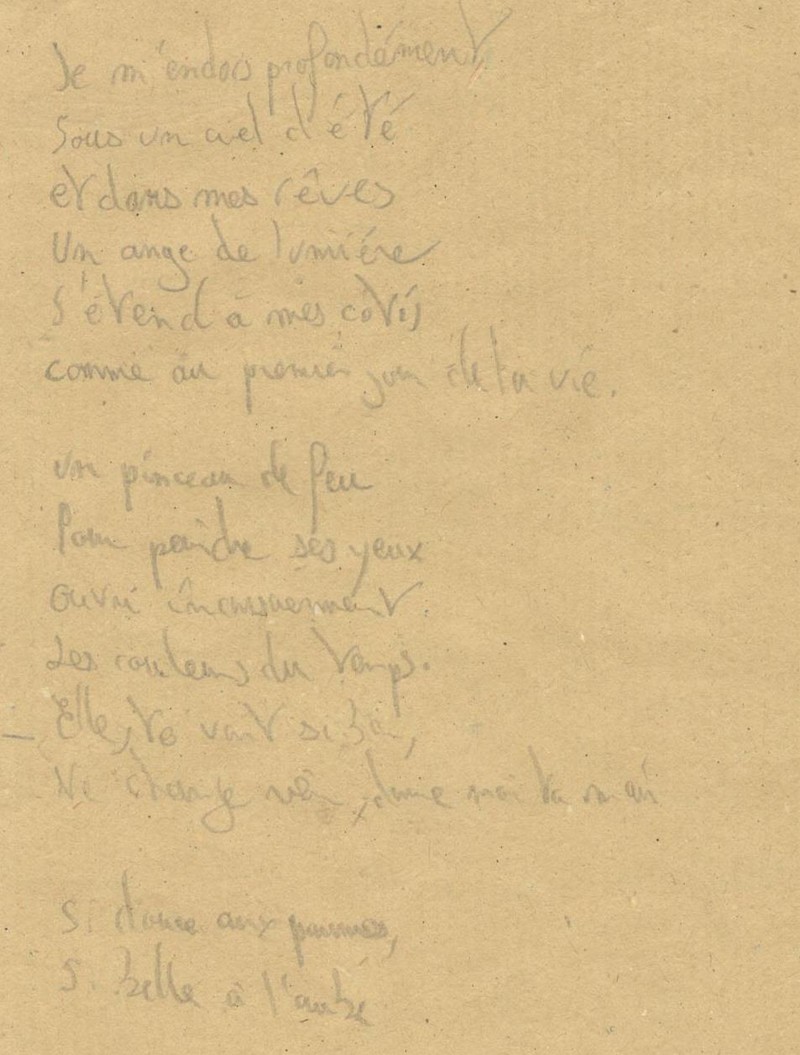 Je m'endors profondément
Sous un ciel d'été
et dans mes rêves
Un ange de lumière
S'étend à mes cotés
comme au premier jour de la vie.
un pinceau de feu
Pour peindre ses yeux
ouvre
Les couleurs du temps.
Elle, te vont si bien,
Ne change rien, donne moi ta main
Si douce aux paumes,
Si belle à l'aube